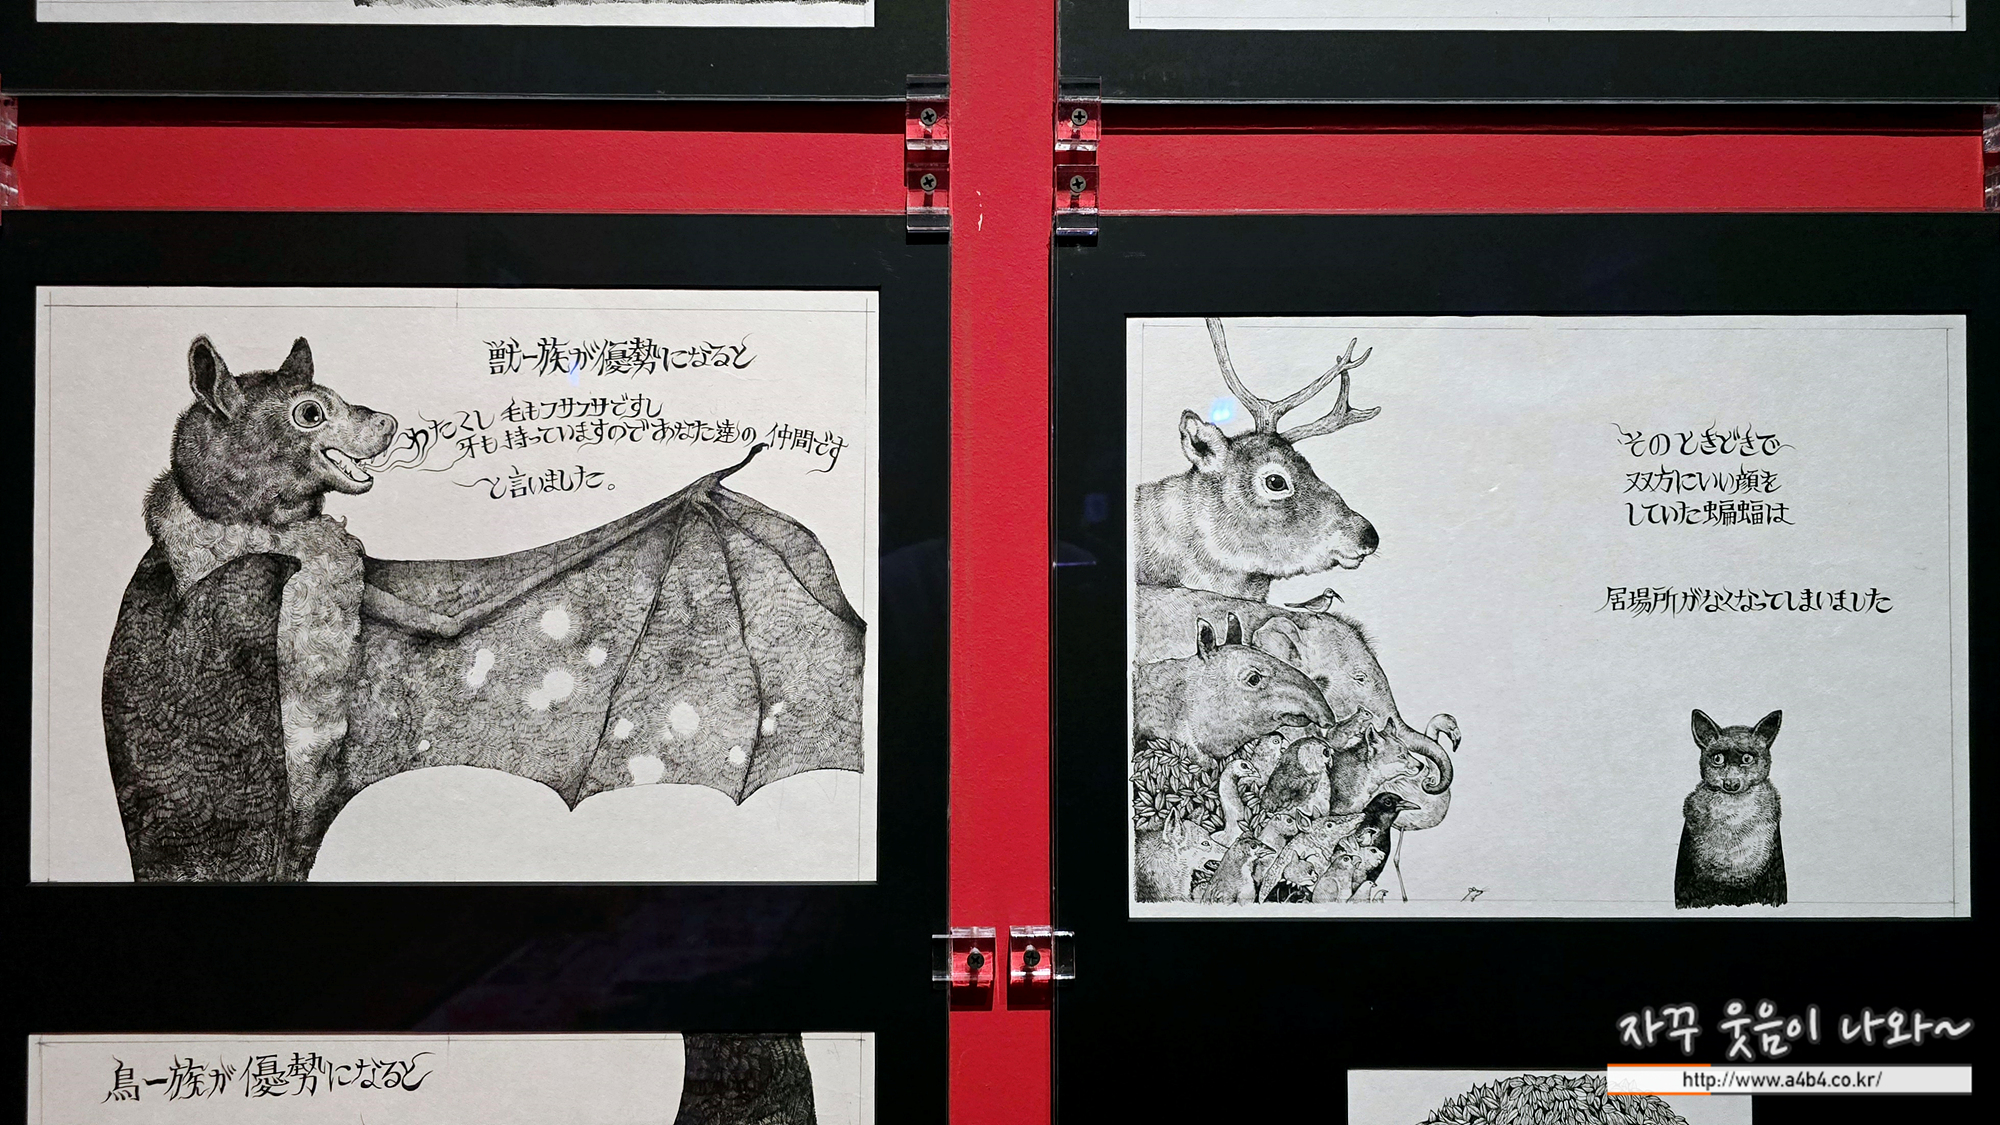 獣一族が優勢になると
わたくし 毛もフサフサですし
牙も持っていますのであなた達の 仲間です
と言いました。
そのときどきで
双方にいい顔を
していた蝙蝠は
居場所がなくなってしまいました
鳥一族が優勢になると
자꾸 웃음이 나와~
http://www.a4b4.co.kr/